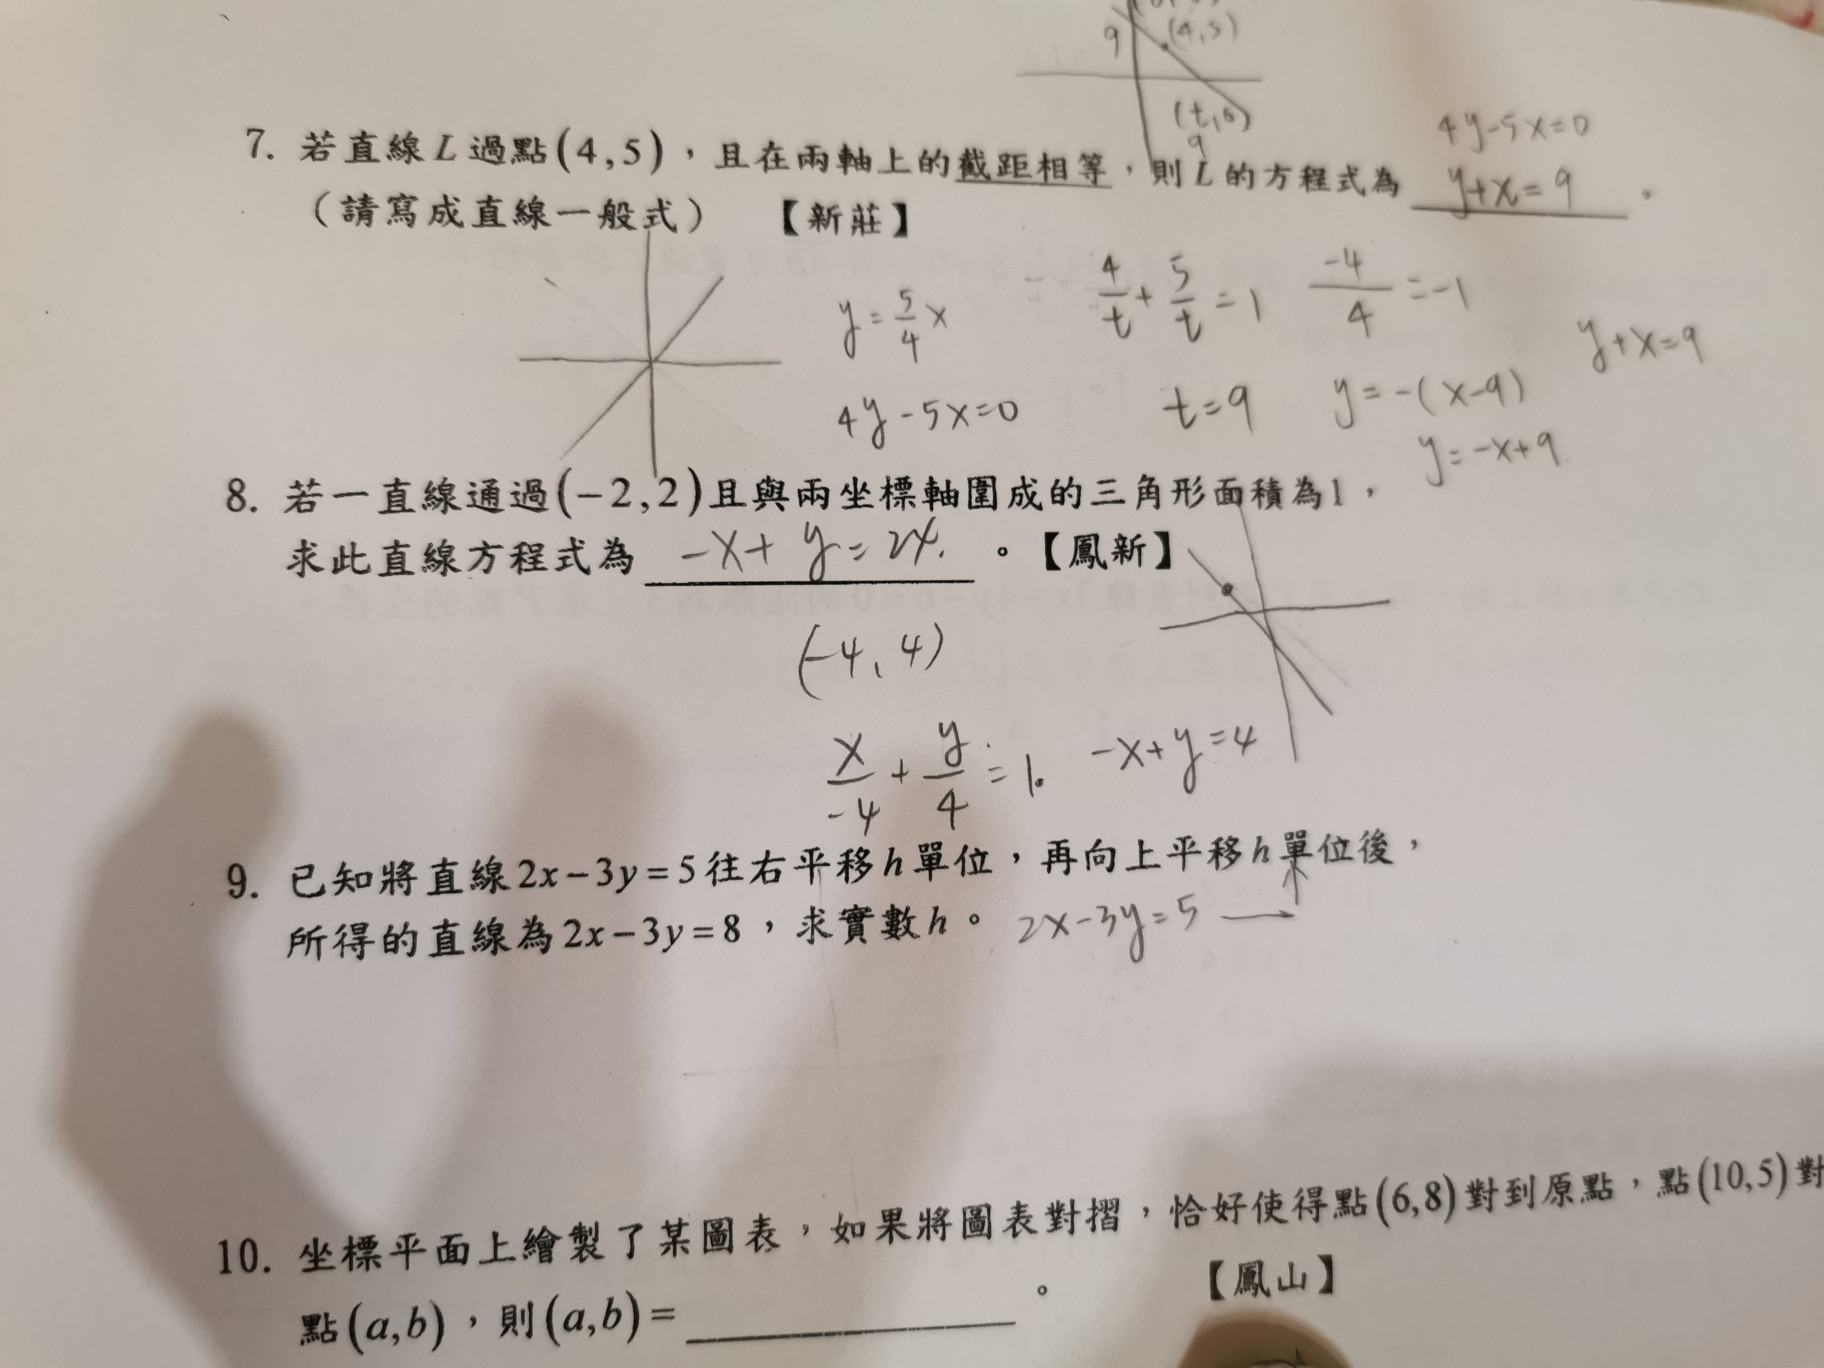 9
(4,5)
7. 若直線L過點(4,5)，且在兩軸上的截距相等，則L的方程式為 y+x=9 。
4y-5x=0
(t,0)
9
（請寫成直線一般式） 【新莊】
y=5/4x
4/t+5/t=1
-4/4=-1
y+x=9
4y-5x=0
t=9
y=-(x-9)
y=-x+9
8. 若一直線通過(-2,2)且與兩坐標軸圍成的三角形面積為1，
求此直線方程式為 -x+y= 。【鳳新】
(-4,4)
x/-4+y/4=1
-x+y=4
9. 已知將直線2x-3y=5往右平移h單位，再向上平移h單位後，
所得的直線為2x-3y=8，求實數h。 2x-3y=5 → ↑
10. 坐標平面上繪製了某圖表，如果將圖表對摺，恰好使得點(6,8)對到原點，點(10,5)對
點(a,b)，則(a,b)= 。 【鳳山】